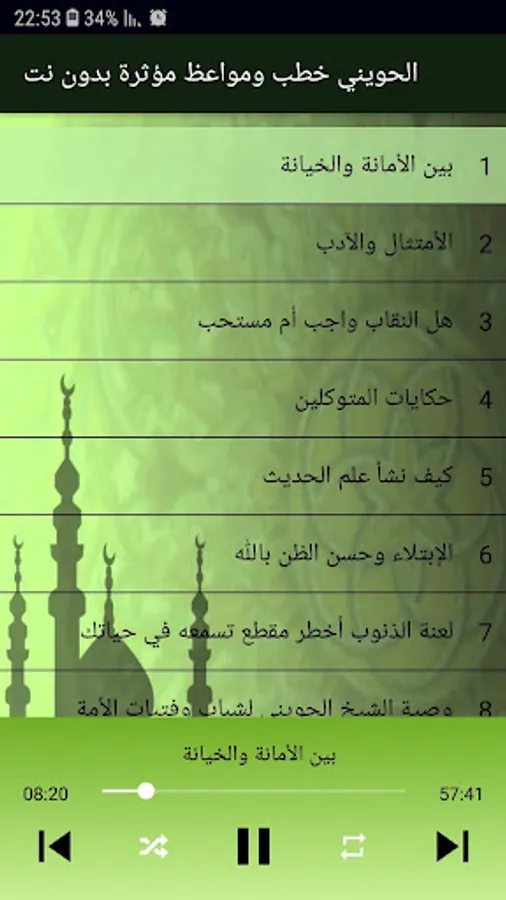 22:53 34%
الحويني خطب ومواعظ مؤثرة بدون نت
1 بين الأمانة والخيانة
2 الأمتثال والآدب
3 هل النقاب واجب أم مستحب
4 حكايات المتوكلين
5 كيف نشأ علم الحديث
6 الإبتلاء وحسن الظن بالله
7 لعنة الذنوب أخطر مقطع تسمعه في حياتك
8 وصية الشيخ الحويني لشباب وفتيات الأمة
بين الأمانة والخيانة
08:20 57:41